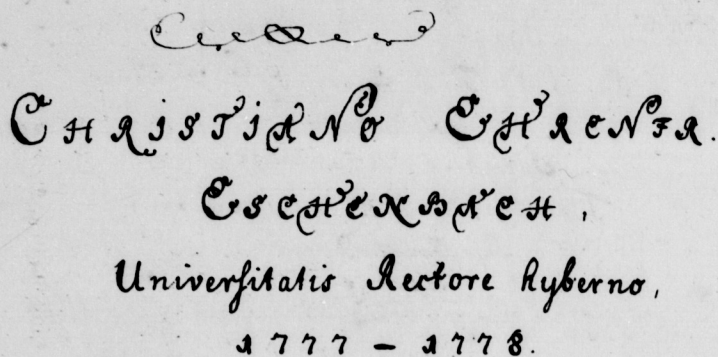 CHRISTIANO EHRENFR.
ESCHENBACH,
Universitatis Rectore hyberno,
1777 – 1778.